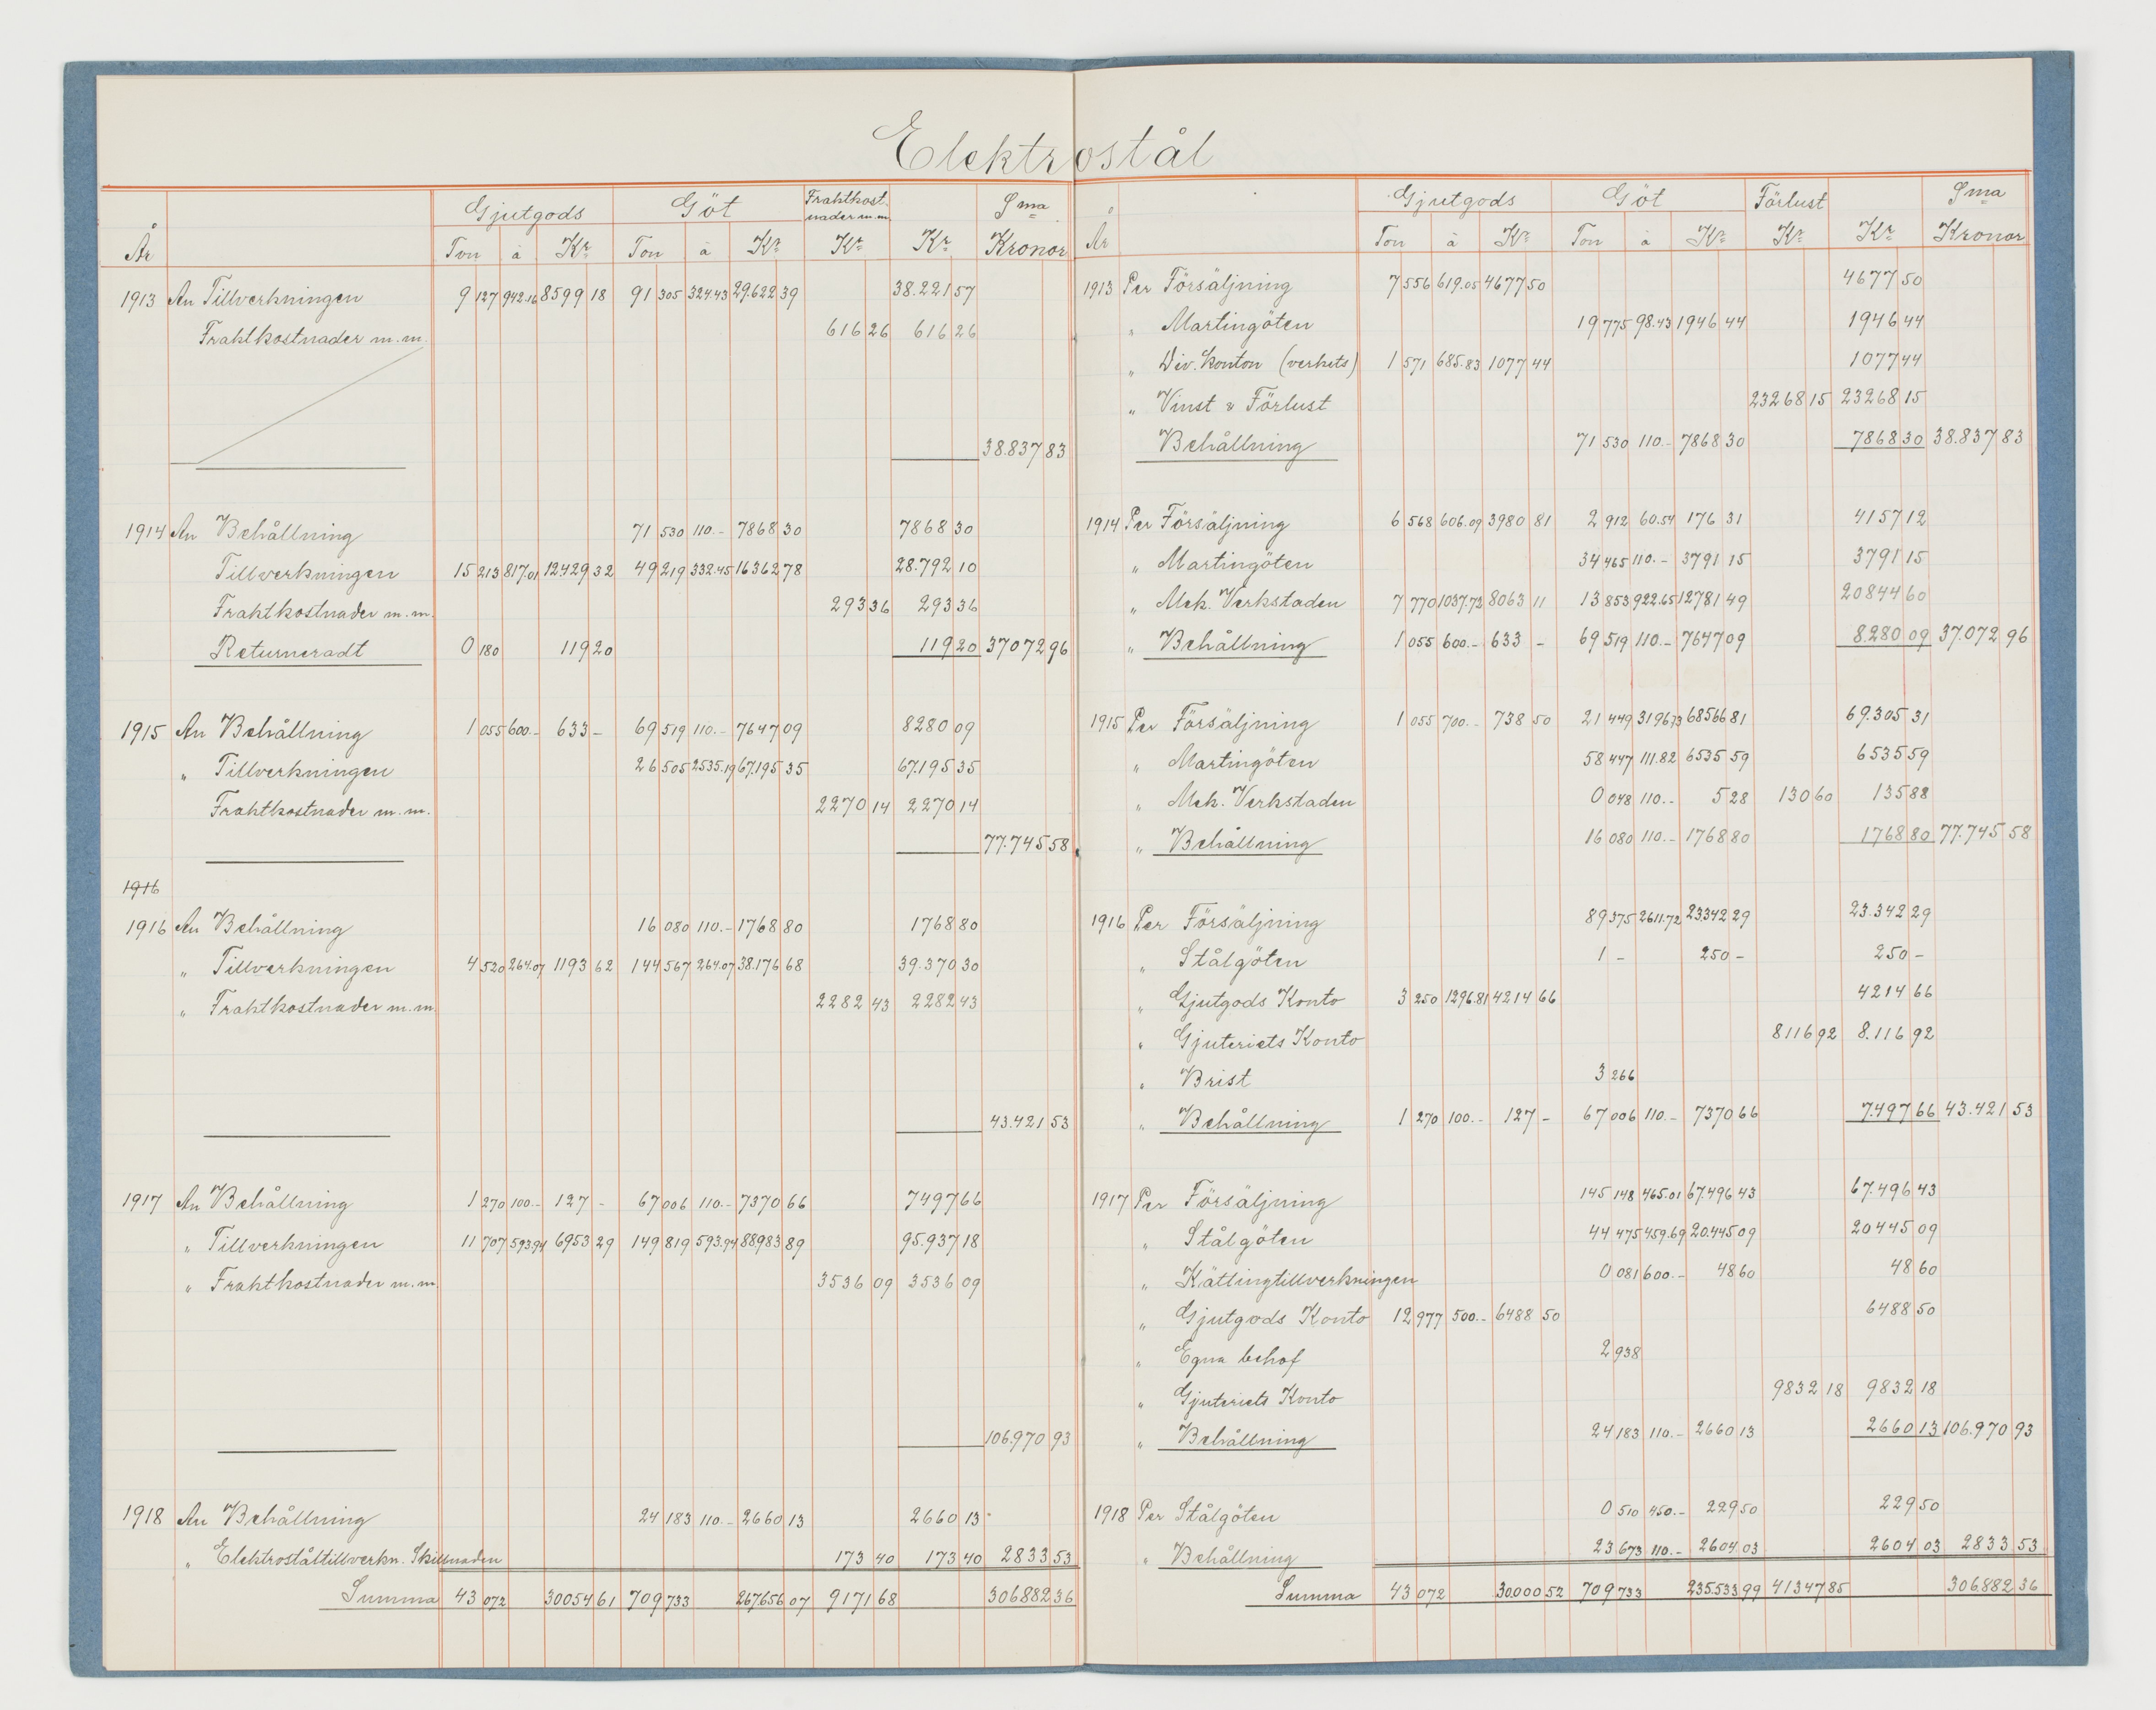 Elektrostål
Gjutgods Göt Fraktkostnader m.m. Sma
År Ton à Kr Ton à Kr Kr Kr Kronor
1913 An Tillverkningen 9 127 942.16 8599 18 91 305 324.43 29.622 39 38.221 57
Fraktkostnader m.m. 616 26 616 26
38.837 83
1914 An Behållning 71 530 110.- 7868 30 7868 30
Tillverkningen 15 213 817.01 12.429 32 49 219 332.45 16362 78 28.792 10
Fraktkostnader m.m. 293 36 293 36
Returneradt 0 180 119 20 119 20 37072 96
1915 An Behållning 1 055 600.- 633 - 69 519 110.- 7647 09 8280 09
" Tillverkningen 26 505 2535.19 67.195 35 67.195 35
Fraktkostnader m.m. 2270 14 2270 14
77.745 58
1916
1916 An Behållning 16 080 110.- 1768 80 1768 80
" Tillverkningen 4 520 264.07 1193 62 144 567 264.07 38.176 68 39.370 30
" Fraktkostnader m.m. 2282 43 2282 43
43.421 53
1917 An Behållning 1 270 100.- 127 - 67 006 110.- 7370 66 7497 66
" Tillverkningen 11 707 593.94 6953 29 149 819 593.94 88.983 89 95.937 18
" Fraktkostnader m.m. 3536 09 3536 09
106.970 93
1918 An Behållning 24 183 110.- 2660 13 2660 13
" Elektroståltillverkn. Skillnaden 173 40 173 40 2833 53
Summa 43 072 30054 61 709 733 267.656 07 9171 68 306.882 36
Gjutgods Göt Förlust Sma
År Ton à Kr Ton à Kr Kr Kr Kronor
1913 Per Försäljning 7 556 619.05 4677 50 4677 50
" Martingöten 19 775 98.43 1946 44 1946 44
" Div. Konton (verkets) 1 571 685.83 1077 44 1077 44
" Vinst & Förlust 23268 15 23268 15
Behållning 71 530 110.- 7868 30 7868 30 38.837 83
1914 Per Försäljning 6 568 606.09 3980 81 2 912 60.54 176 31 4157 12
" Martingöten 34 465 110.- 3791 15 3791 15
" Mek. Verkstaden 7 770 1037.72 8063 11 13 853 922.65 12781 49 20844 60
" Behållning 1 055 600.- 633 - 69 519 110.- 7647 09 8.280 09 37.072 96
1915 Per Försäljning 1 055 700.- 738 50 21 449 3196.73 68566 81 69.305 31
" Martingöten 58 447 111.82 6535 59 6535 59
" Mek. Verkstaden 0 048 110.- 5 28 130 60 135 88
" Behållning 16 080 110.- 1768 80 1768 80 77.745 58
1916 Per Försäljning 89 375 261.72 23.342 29 23.342 29
" Stålgöten 1 - 250 - 250 -
" Gjutgods Konto 3 250 1296.81 4214 66 4214 66
" Gjuteriets Konto 8116 92 8.116 92
" Brist 3 266
" Behållning 1 270 100.- 127 - 67 006 110.- 7370 66 7.497 66 43.421 53
1917 Per Försäljning 145 148 465.01 67.496 43 67.496 43
" Stålgöten 44 475 459.69 20.445 09 20445 09
" Kättingtillverkningen 0 081 600.- 48 60 48 60
" Gjutgods Konto 12 977 500.- 6488 50 6488 50
" Egna behof 2 938
" Gjuteriets Konto 9832 18 9832 18
" Behållning 24 183 110.- 2660 13 2660 13 106.970 93
1918 Per Stålgöten 0 510 450.- 229 50 229 50
" Behållning 23 673 110.- 2604 03 2604 03 2833 53
Summa 43 072 30.000 52 709 733 235.533 99 41347 85 306.882 36